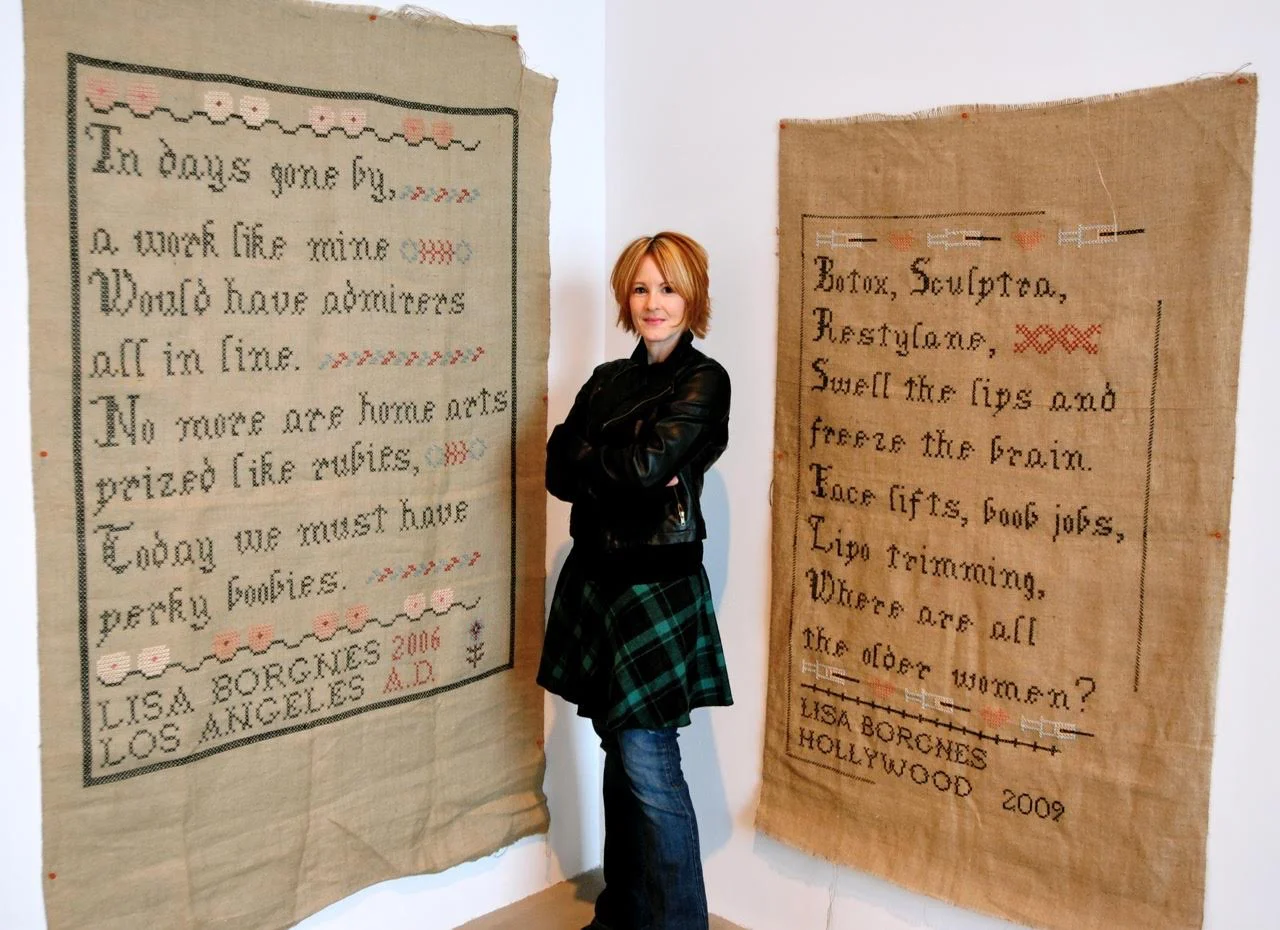 In days gone by,
a work like mine
Would have admirers
all in line.
No more are home arts
prized like rubies,
Today we must have
perky boobies.
LISA BORGNES 2006
LOS ANGELES A.D.
Botox, Sculptra,
Restylane,
Swell the lips and
freeze the brain.
Face lifts, boob jobs,
Lipo trimming,
Where are all
the older women?
LISA BORGNES
HOLLYWOOD 2009